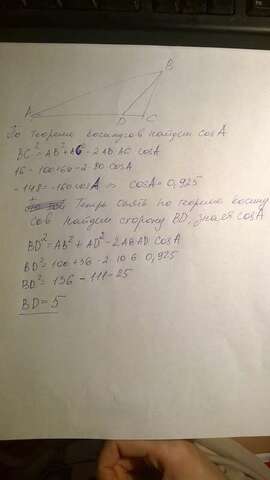 B
A D C
По теореме косинусов найдем cosA
BC²=AB²+AC-2AB AC cosA
16=100+60-2 80 cosA
-148=-160cosA => cosA=0,925
Теперь опять по теореме косину
сов найдем сторону BD, зная cosA
BD²=AB²+AD²-2AB AD cosA
BD²=100+36-2 10 6 0,925
BD²=136-111=25
BD=5